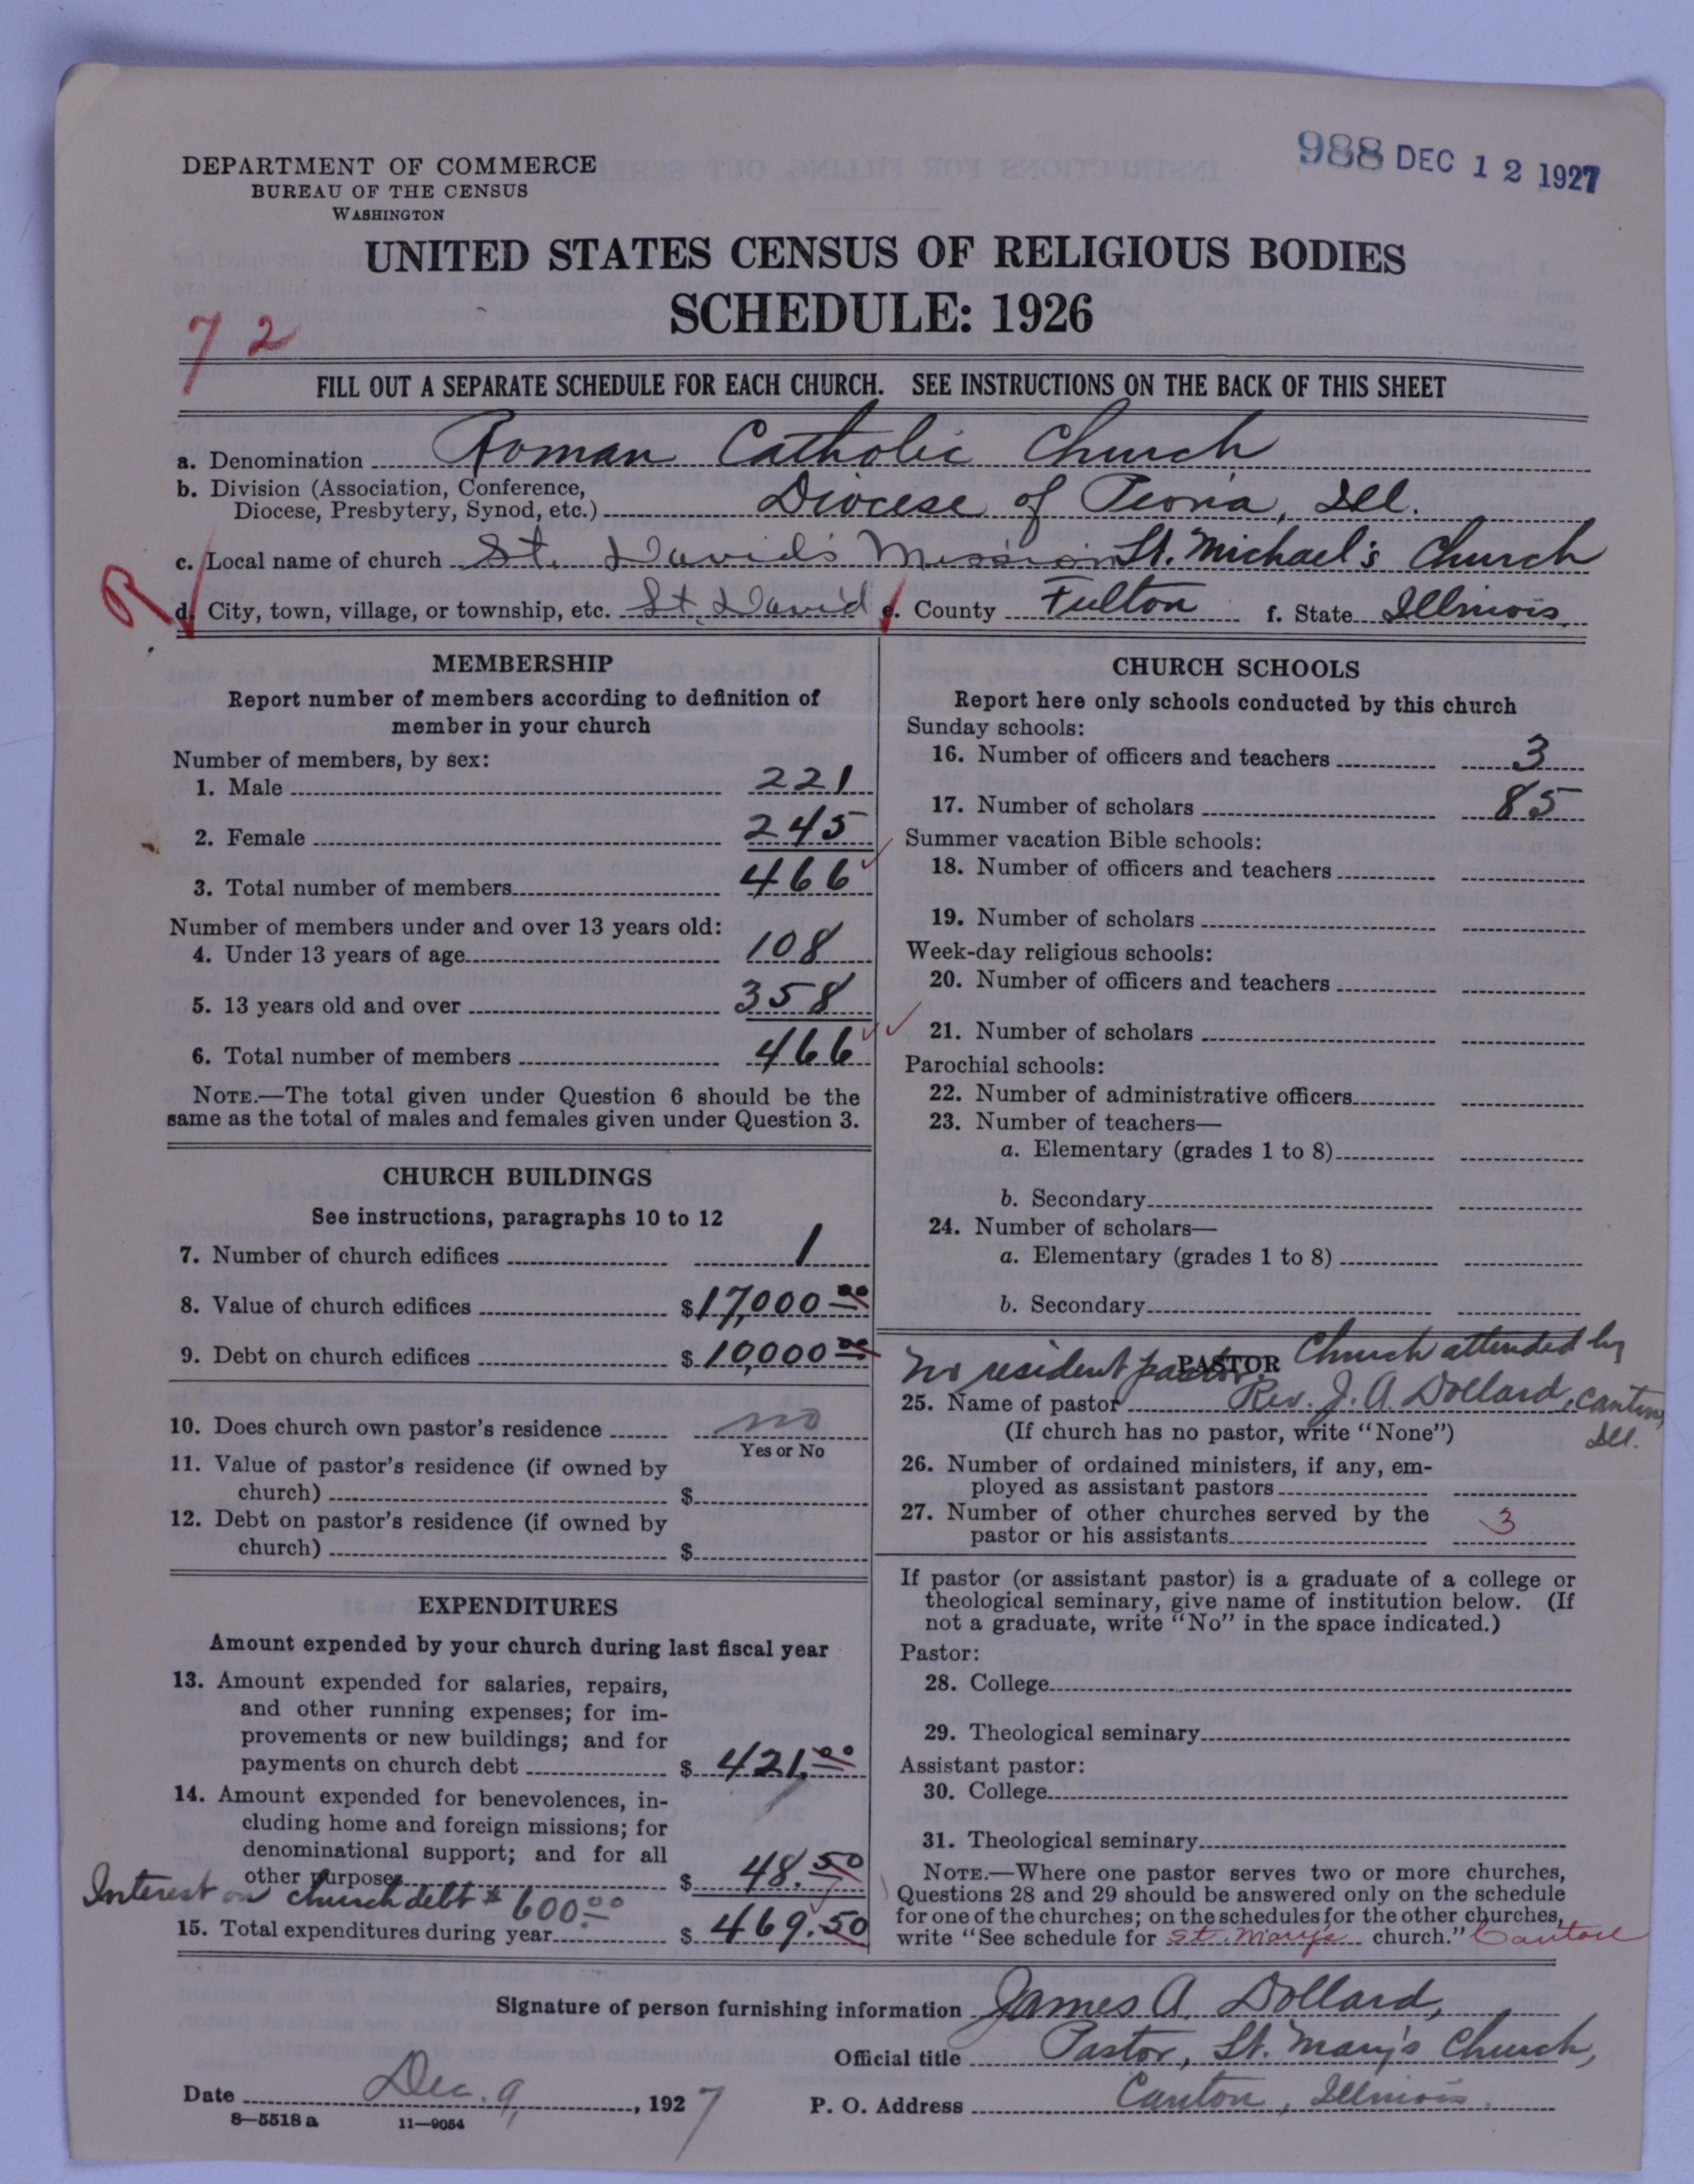 988 DEC 12 1927
DEPARTMENT OF COMMERCE
BUREAU OF THE CENSUS
WASHINGTON
UNITED STATES CENSUS OF RELIGIOUS BODIES
SCHEDULE: 1926
72
FILL OUT A SEPARATE SCHEDULE FOR EACH CHURCH. SEE INSTRUCTIONS ON THE BACK OF THIS SHEET
a. Denomination Roman Catholic Church
b. Division (Association, Conference,
Diocese, Presbytery, Synod, etc.) Diocese of Peoria, Ill.
c. Local name of church St. David's Mission St. Michael's Church
R
d. City, town, village, or township, etc. St. David e. County Fulton f. State Illinois
MEMBERSHIP
Report number of members according to definition of
member in your church
Number of members, by sex:
1. Male 221
2. Female 245
3. Total number of members 466
Number of members under and over 13 years old:
4. Under 13 years of age 108
5. 13 years old and over 358
6. Total number of members 466
NOTE.—The total given under Question 6 should be the
same as the total of males and females given under Question 3.
CHURCH BUILDINGS
See instructions, paragraphs 10 to 12
7. Number of church edifices 1
8. Value of church edifices $17,000 00
9. Debt on church edifices $10,000 00
10. Does church own pastor's residence no
Yes or No
11. Value of pastor's residence (if owned by
church) $
12. Debt on pastor's residence (if owned by
church) $
EXPENDITURES
Amount expended by your church during last fiscal year
13. Amount expended for salaries, repairs,
and other running expenses; for im-
provements or new buildings; and for
payments on church debt $ 421.00
14. Amount expended for benevolences, in-
cluding home and foreign missions; for
denominational support; and for all
other purposes $ 48.50
Interest on church debt $ 600.00
15. Total expenditures during year $ 469.50
CHURCH SCHOOLS
Report here only schools conducted by this church
Sunday schools:
16. Number of officers and teachers 3
17. Number of scholars 85
Summer vacation Bible schools:
18. Number of officers and teachers
19. Number of scholars
Week-day religious schools:
20. Number of officers and teachers
21. Number of scholars
Parochial schools:
22. Number of administrative officers
23. Number of teachers—
a. Elementary (grades 1 to 8)
b. Secondary
24. Number of scholars—
a. Elementary (grades 1 to 8)
b. Secondary
No resident pastor. PASTOR Church attended by
25. Name of pastor Rev. J. A. Dollard, Canton,
Ill.
(If church has no pastor, write "None")
26. Number of ordained ministers, if any, em-
ployed as assistant pastors
27. Number of other churches served by the
pastor or his assistants 3
If pastor (or assistant pastor) is a graduate of a college or
theological seminary, give name of institution below. (If
not a graduate, write "No" in the space indicated.)
Pastor:
28. College
29. Theological seminary
Assistant pastor:
30. College
31. Theological seminary
NOTE.—Where one pastor serves two or more churches,
Questions 28 and 29 should be answered only on the schedule
for one of the churches; on the schedules for the other churches,
write "See schedule for St. Mary's church." Canton
Signature of person furnishing information James A. Dollard,
Official title Pastor, St. Mary's Church,
Date Dec. 9, 1927 P. O. Address Canton, Illinois.
8—5518 a 11—9054